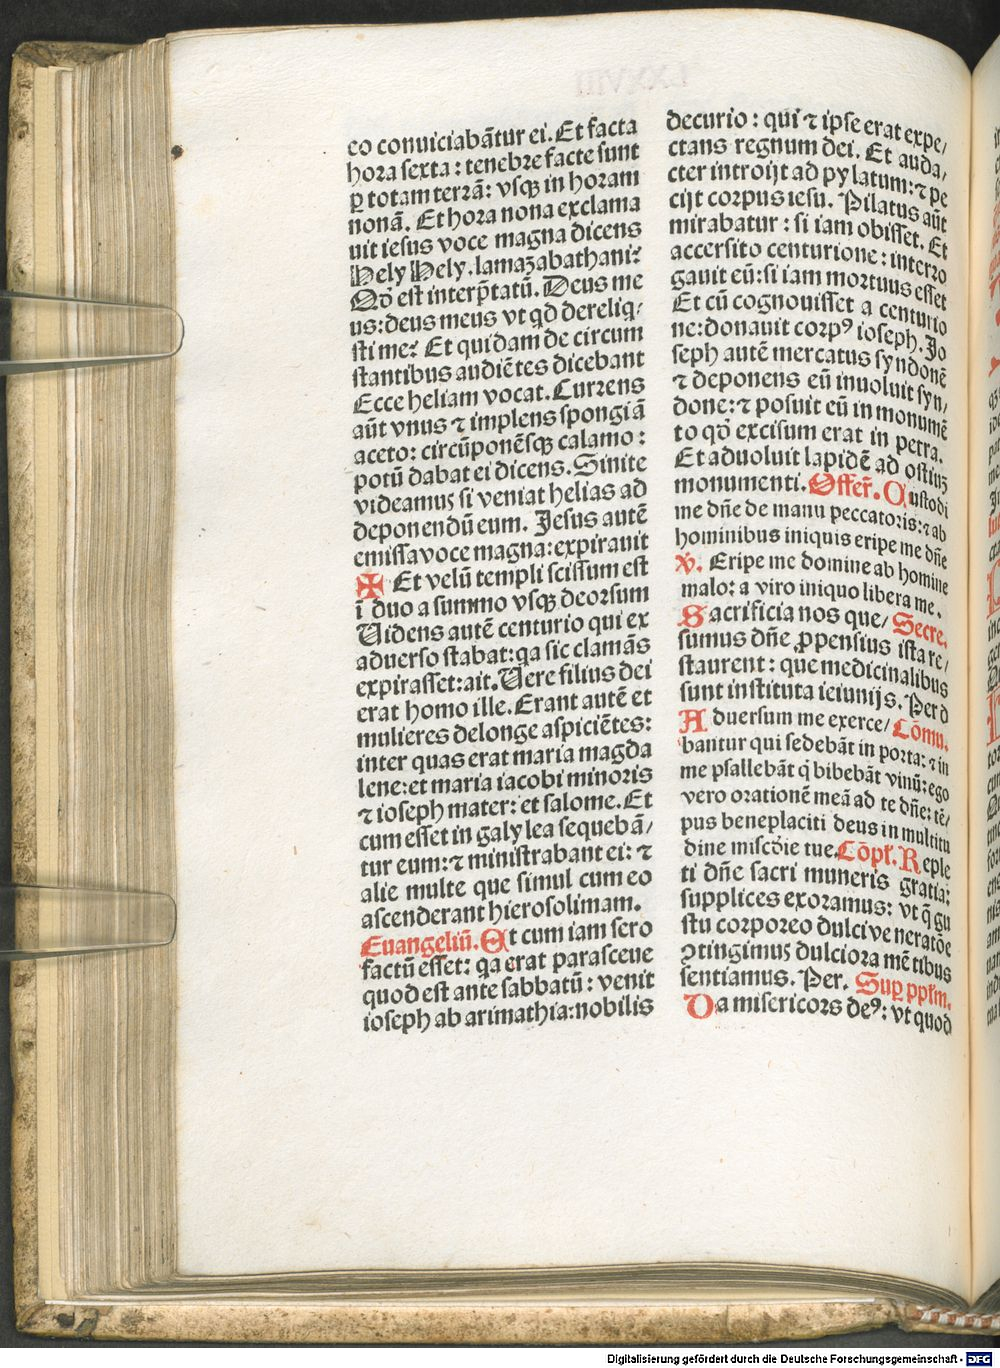 eo conuiciabãtur ei. Et facta
hora sexta : tenebre facte sunt
ꝑ totam terrã: vsqꝫ in horam
nonã. Et hora nona exclama
uit iesus voce magna dicens
Hely Hely. lamazabathani?
Qõ est interp̃tatũ. Deus me
us: deus meus vt qd dereliq̃/
sti me? Et quidam de circum
stantibus audiẽtes dicebant
Ecce heliam vocat. Currens
aũt vnus ⁊ implens spongiã
aceto: circũponẽsqꝫ calamo :
potũ dabat ei dicens. Sinite
videamus si veniat helias ad
deponendũ eum. Jesus autẽ
emissa voce magna: expirauit
✠ Et velũ templi scissum est
ĩ duo a summo vsqꝫ deorsum
Uidens autẽ centurio qui ex
aduerso stabat: qa sic clamãs
expirasset: ait. Uere filius dei
erat homo ille. Erant autẽ et
mulieres delonge aspiciẽtes:
inter quas erat maria magda
lene: et maria iacobi minoris
⁊ ioseph mater: et salome. Et
cum esset in galylea sequebã/
tur eum: ⁊ ministrabant ei: ⁊
alie multe que simul cum eo
ascenderant hierosolimam.
Euangeliũ. Et cum iam sero
factũ esset: qa erat parasceue
quod est ante sabbatũ : venit
ioseph ab arimathia: nobilis
decurio : qui ⁊ ipse erat expe/
ctans regnum dei. Et auda/
cter introijt ad pylatum: ⁊ pe
cijt corpus iesu. Pilatus aũt
mirabatur : si iam obisset. Et
accersito centurione : interro
gauit eũ: si iam mortuus esset
Et cũ cognouisset a centurio
ne: donauit corpꝰ ioseph. Jo
seph autẽ mercatus syndonẽ
⁊ deponens eũ inuoluit syn/
done: ⁊ posuit eũ in monumẽ
to qõ excisum erat in petra.
Et aduoluit lapidẽ ad ostiuꝫ
monumenti. Offer̃. Custodi
me dñe de manu peccatoris: ⁊ ab
hominibus iniquis eripe me dñe
v̇. Eripe me domine ab homine
malo: a viro iniquo libera me.
Sacrificia nos que/ Secre.
sumus dñe ꝓpensius ista re/
staurent : que medicinalibus
sunt instituta ieiunijs. Per d
Aduersum me exerce/ Cõmu.
bantur qui sedebãt in porta: ⁊ in
me psallebãt q̇ bibebãt vinũ: ego
vero orationẽ meã ad te dñe: tẽ/
pus beneplaciti deus in multitu
dine misc̃òie tue. Cõpl̃. Reple
ti dñe sacri muneris gratia:
supplices exoramus: vt q̃ gu
stu corporeo dulci veneratõe
ꝯtingimus dulciora mẽtibus
sentiamus. Per. Suꝑ pp̃lm.
Da misericors deꝰ: vt quod
Digitalisierung gefördert durch die Deutsche Forschungsgemeinschaft - DFG